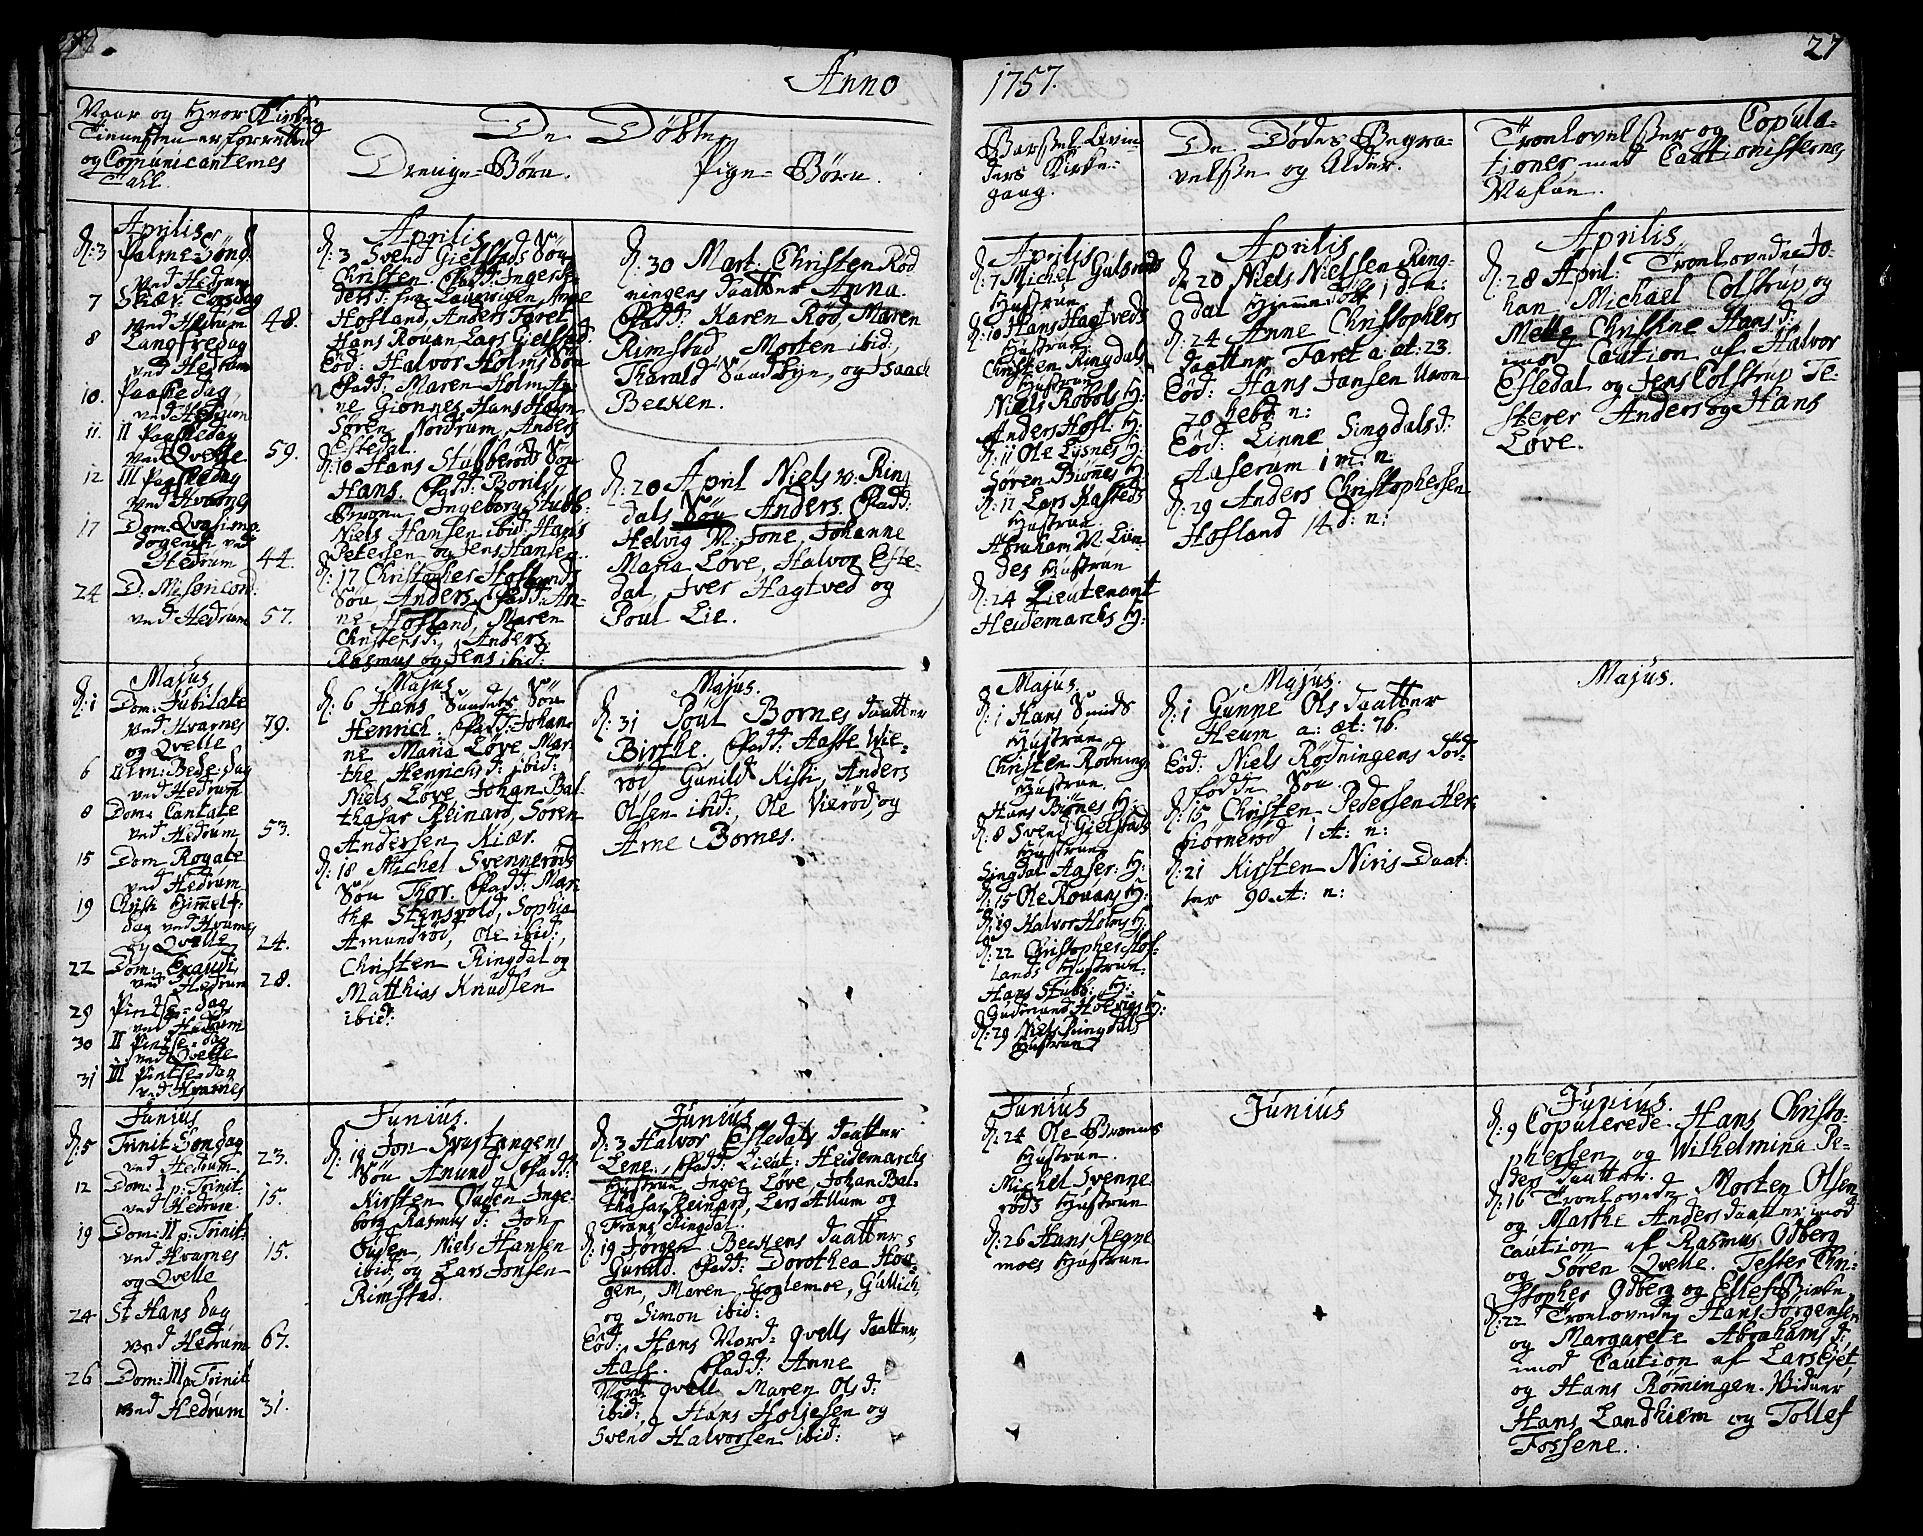 27
Anno
1757.
Naar og hvor Kirke
Tienesten er forrettet
og Comunicanternes
Tall.
De Döbte
Drenge-Börn.
Pige-Börn.
Barsel-Qvin-
ders Kirke-
gang.
De Dödes Begra-
velse og Alder.
Troelovelser og Copula-
tioner med Cautionisternes
Nafne.
Aprilis
d: 3 Palme Sönd.
ved Hedrum
7 Skiær Torsdag
ved Hedrum 48.
8 Langfredag
ved Hedrum
10. Paaskedag
ved Hedrum
11. II Paaskedag
ved Qvelle 59.
12 III Paaskedag
ved Hvarnes
17 Dom: Qvasimo-
dogeniti ved
Hedrum 44.
24 D. Misericord:
ved Hedrum 57.
Aprilis
d: 3 Svend Gielstads Sön
Christen. Fadd: Inger
Hofland, Anders Faret
Hans Rouan Lars Gielstad.
Eod: Halvor Holms Sön
Fadd: Maren Holm An-
ne Gionnes, Hans Holm
Sören Nordrum, Anders
Estedal.
d: 10 Hans Stubberöds Sön
Hans. Fadd: Bontes
Bruun Ingeborg Stubb:
Niels Hansen ibid: Hans
Petersen og Jens Hansen.
d: 17 Christopher Hoflands
Sön Anders. Fadd: An-
ne Hofland, Maren
Christensd: Anders
Rasmus og Jens ibid:
d: 30 Mart. Christen Röd
ningens Daatter Anna.
Fadd: Karen Röd, Maren
Rimstad, Morten ibid:
Tharald Saudbye, og Isaach
Becken.
d: 20 April Niels w. Ring
dals Sön Anders. Fadd:
Helvig M: Tone, Johanne
Maria Löve, Halvor Este-
dal, Iver Hagtved og
Poul Lie.
Aprilis
d: 7 Michel Gulsrods
Hustrue
d: 10 Hans Hagtveds
Hustrue
Christen Ringdals
Hustrue
Niels Robols H:
Anders Hofl: H:
d: 11 Ole Lysnes H:
Sören Biönnes H:
d: 17 Lars Rasteds
Hustrue.
Abraham N: Lien-
des Hustrue
d: 24 Lieutenant
Heidemarchs H:
Aprilis
d: 20 Niels Nielsen Ring-
dal hjemmedöbt 1 d: n:
d: 24 Anne Christophers
Daatter Faret a: æt: 23.
Eod: Hans Jansen Uvon
70 Jebd n:
Eod: Linne Singdalsd:
Aaserum 1 m: n:
d: 29 Anders Christophersen
Hofland 14 d: n:
Aprilis
d: 28 April: Troelovede Jo-
han Michael Colstrup og
Mette Christine Hansd:
imod Caution af Halvor
Estedal og Jens Colstrup Te-
sterer Anders og Hans
Löve.
Majus
d: 1 Dom: Jubilate
ved Hvarnes 79.
og Qvelle
6 Alm: Bede-Dag
ved Hedrum
8 Dom: Cantate
ved Hedrum 53.
15 Dom Rogate
ved Hedrum
19 Christi Himmelf:
dag ved Hvarnes
og Qvelle 24.
22 Dom: Exaudi
ved Hedrum 28.
29 Pintse-Dag
ved Hedrum
30 II Pintse-dag
ved Qvelle
31 III Pintse-dag
ved Hvarnes
Majus
d: 6 Hans Sundets Sön
Henrich. Fadd: Johan-
ne Maria Löve, Mar-
the Henrichsd: ibid:
Niels Löve Johan Bal-
thasar Reinard, Sören
Andersen Kiær.
d: 18 Michel Svenneröds
Sön Thor. Fadd: Mar-
the Stensvold, Sophia
Amundröd, Ole ibid:,
Christen Ringdal og
Matthias Knudsen
ibid:
Majus.
d: 31 Poul Bornes Daatter
Birthe. Fadd: Aasse Wie-
röd Gunild Kisti, Anders
Olsen ibid: Ole Vieröd, og
Arne Bornes.
Majus.
d: 1 Hans Sunds
Hustrue
Christen Rödning
Hustrue
Hans Biönes H:
d: 8 Svend Gielstads
Hustrue
Singdal Aaser: H:
d: 15 Ole Rouans H:
d: 19 Halvor Holms H:
d: 22 Christopher Hof-
lands Hustrue.
Hans Stubb: H:
Gudmund Holvigs H:
d: 29 Niels Ringdals
Hustrue
Majus.
d: 1 Gunne Ols Daatter
Heum a: æt: 76.
Eod: Niels Rödningens död-
födde Sön
d: 15 Christen Pedersen Her-
biörneröd 1 A: n:
d: 21 Kirsten Niris Daat:
ter 90. A: n:
Majus.
Junius
d: 5 Trinit Söndag
ved Hedrum. 23.
12 Dom: I p: Trinit:
ved Hedrum 15.
19 Dom: II p: Trinit:
ved Hvarnes 15.
og Qvelle
24 St Hans Dag
ved Hedrum 67.
26 Dom: III p: Trinit
ved Hedrum 31.
Junius.
d: 19 Jon Svartangens
Sön Anund. Fadd:
Kirsten Ouden Inge-
borg Rasmusd: Jon
Ouden, Niels Hansen
ibid: og Lars Jonsen
Rimstad.
Junius
d: 3 Halvor Estedals Daatter
Lene. Fadd: Lieut: Heidemarchs
Hustrue, Inger Löve, Johan Bal-
thasar Reinard, Lars Allum og
Frans Ringdal.
d: 19 Jörgen Beckens Daatter
Gunild. Fadd: Dorothea Hou-
gen, Maren Skoglemoe, Gullich
og Simon ibid:
Eod: Hans Nord: Qvells Daatter
Aase. Fadd: Anne
Nord: Qvell Maren Olsd:
ibid: Hans Holjesen og
Svend Halvorsen ibid:
Junius
d: 24 Ole Brones
Hustrue.
Michel Svenne-
röds Hustrue
d: 26 Hans Regne-
moes Hustrue
Junius
Junius.
d: 9 Copulerede Hans Christo-
phersen og Wilhelmina Pe-
ders Daatter.
d: 16 Troelovede Morten Olsen
og Marthe Anders Daatter imod
Caution af Rasmus Odberg
og Sören Qvelle. Tester Chri-
stopher Odberg og Ellef Birke
d: 22 Troelovede Hans Jörgensen
og Margarete Abrahamsd:
imod Caution af Lars Eiet,
og Hans Römingen. Vidner
Hans Landhiem og Tollef
Fossene.